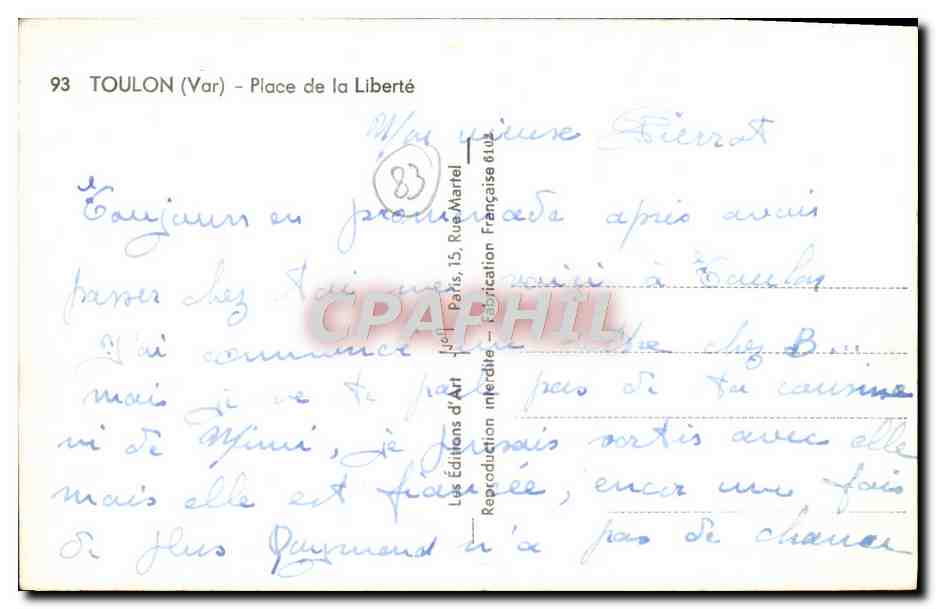 93 TOULON (Var) - Place de la Liberté
Mon vieux Pierrot
83
Toujours en promenade après avoir
passer chez toi me voici à Toulon
J'ai commencé une lettre chez B...
mais je ne te parle pas de ta cousine
ni de Mimi, je pensais sortir avec elle
mais elle est fiancée, encor une fois
de plus Raymond n'a pas de chance
Les Éditions d'Art Yvon Paris, 15, Rue Martel
Reproduction interdite - Fabrication Française 6102
CPAPHIL